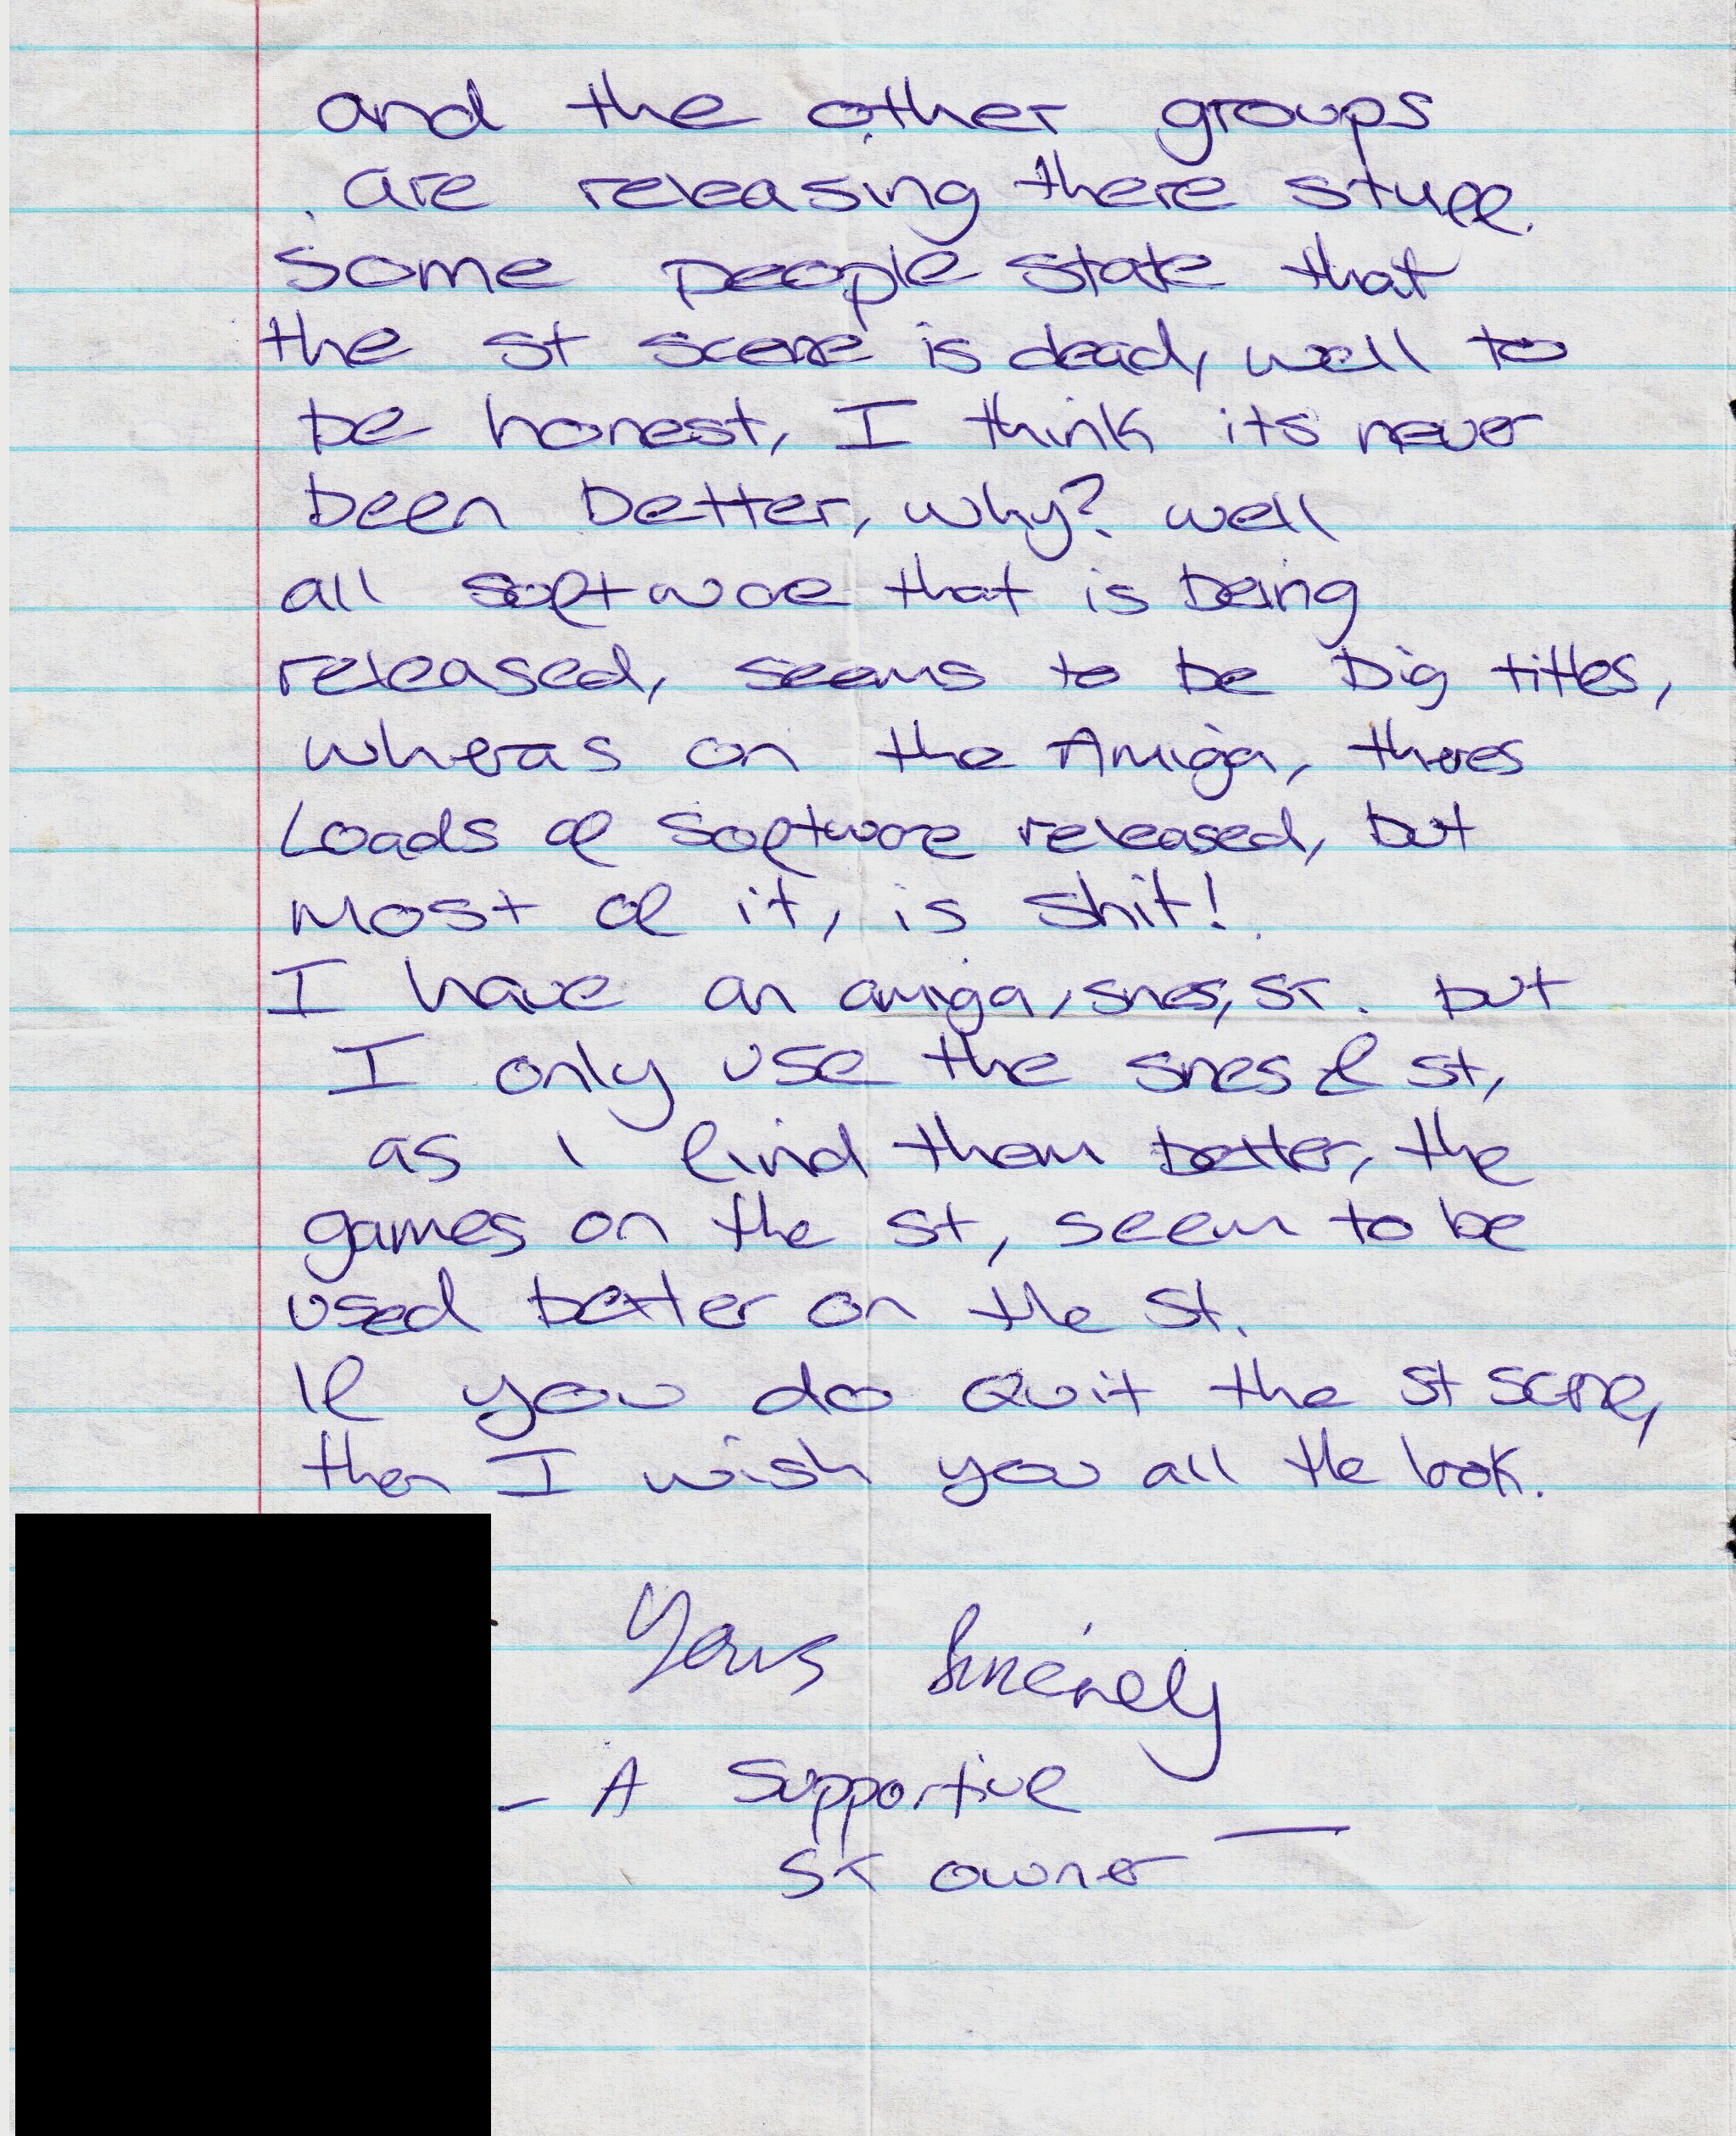 and the other groups
are releasing there stuff.
Some people state that
the st scene is dead, well to
be honest, I think its never
been better, why? well
all software that is being
released, seems to be big titles,
wheras on the Amiga, theres
Loads of software released, but
most of it, is shit!
I have an amiga, snes, ST. but
I only use the snes & st,
as I find them better, the
games on the st, seem to be
used better on the st.
If you do quit the st scene,
then I wish you all the look.
Yours Sincerely
- A Supportive
ST owner -